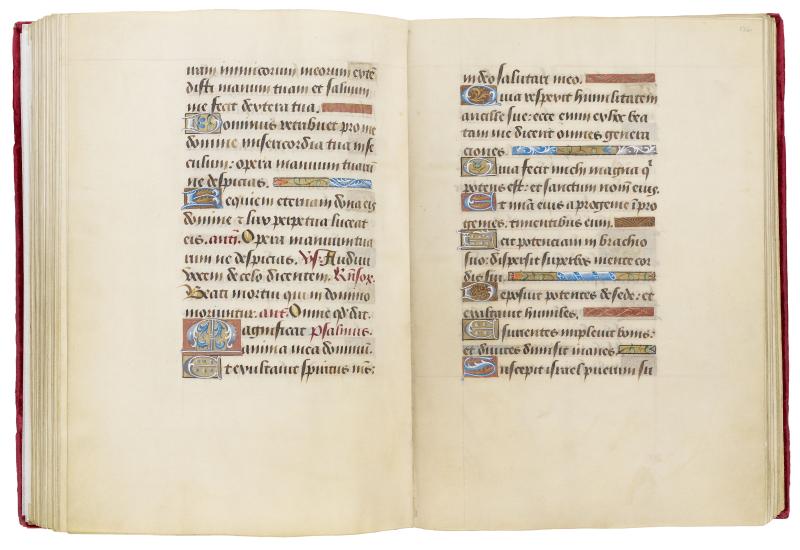 iram inimicorum meorum exte
disti manum tuam et saluum
me fecit dextera tua.
Dominus retribuet pro me
domine misericordia tua in se
culum: opera manuum tuarū
ne despicias.
Requiem eternam dona eis
domine et lux perpetua luceat
eis. ant. Opera manuum tua
rum ne despicias. Vs. Audiui
vocem de celo dicentem. Rñsor.
Beati mortui qui in domino
moriuntur. ant. Omne qd dat.
Magnificat psalmus.
anima mea dominū.
Et exultauit spiritus me:
in deo salutari meo.
Quia respexit humilitatem
ancille sue: ecce enim ex hoc bea
tam me dicent omnes genera
tiones.
Quia fecit michi magna q
potens est: et sanctum nomē eius.
Et mīa eius a progenie in pro
genies. timentibus eum.
Fecit potenciam in brachio
suo: dispersit superbos mente cor
dis sui.
Deposuit potentes de sede: et
exaltauit humiles.
Esurientes impleuit bonis:
et diuites dimisit inanes.
Suscepit israel puerum su